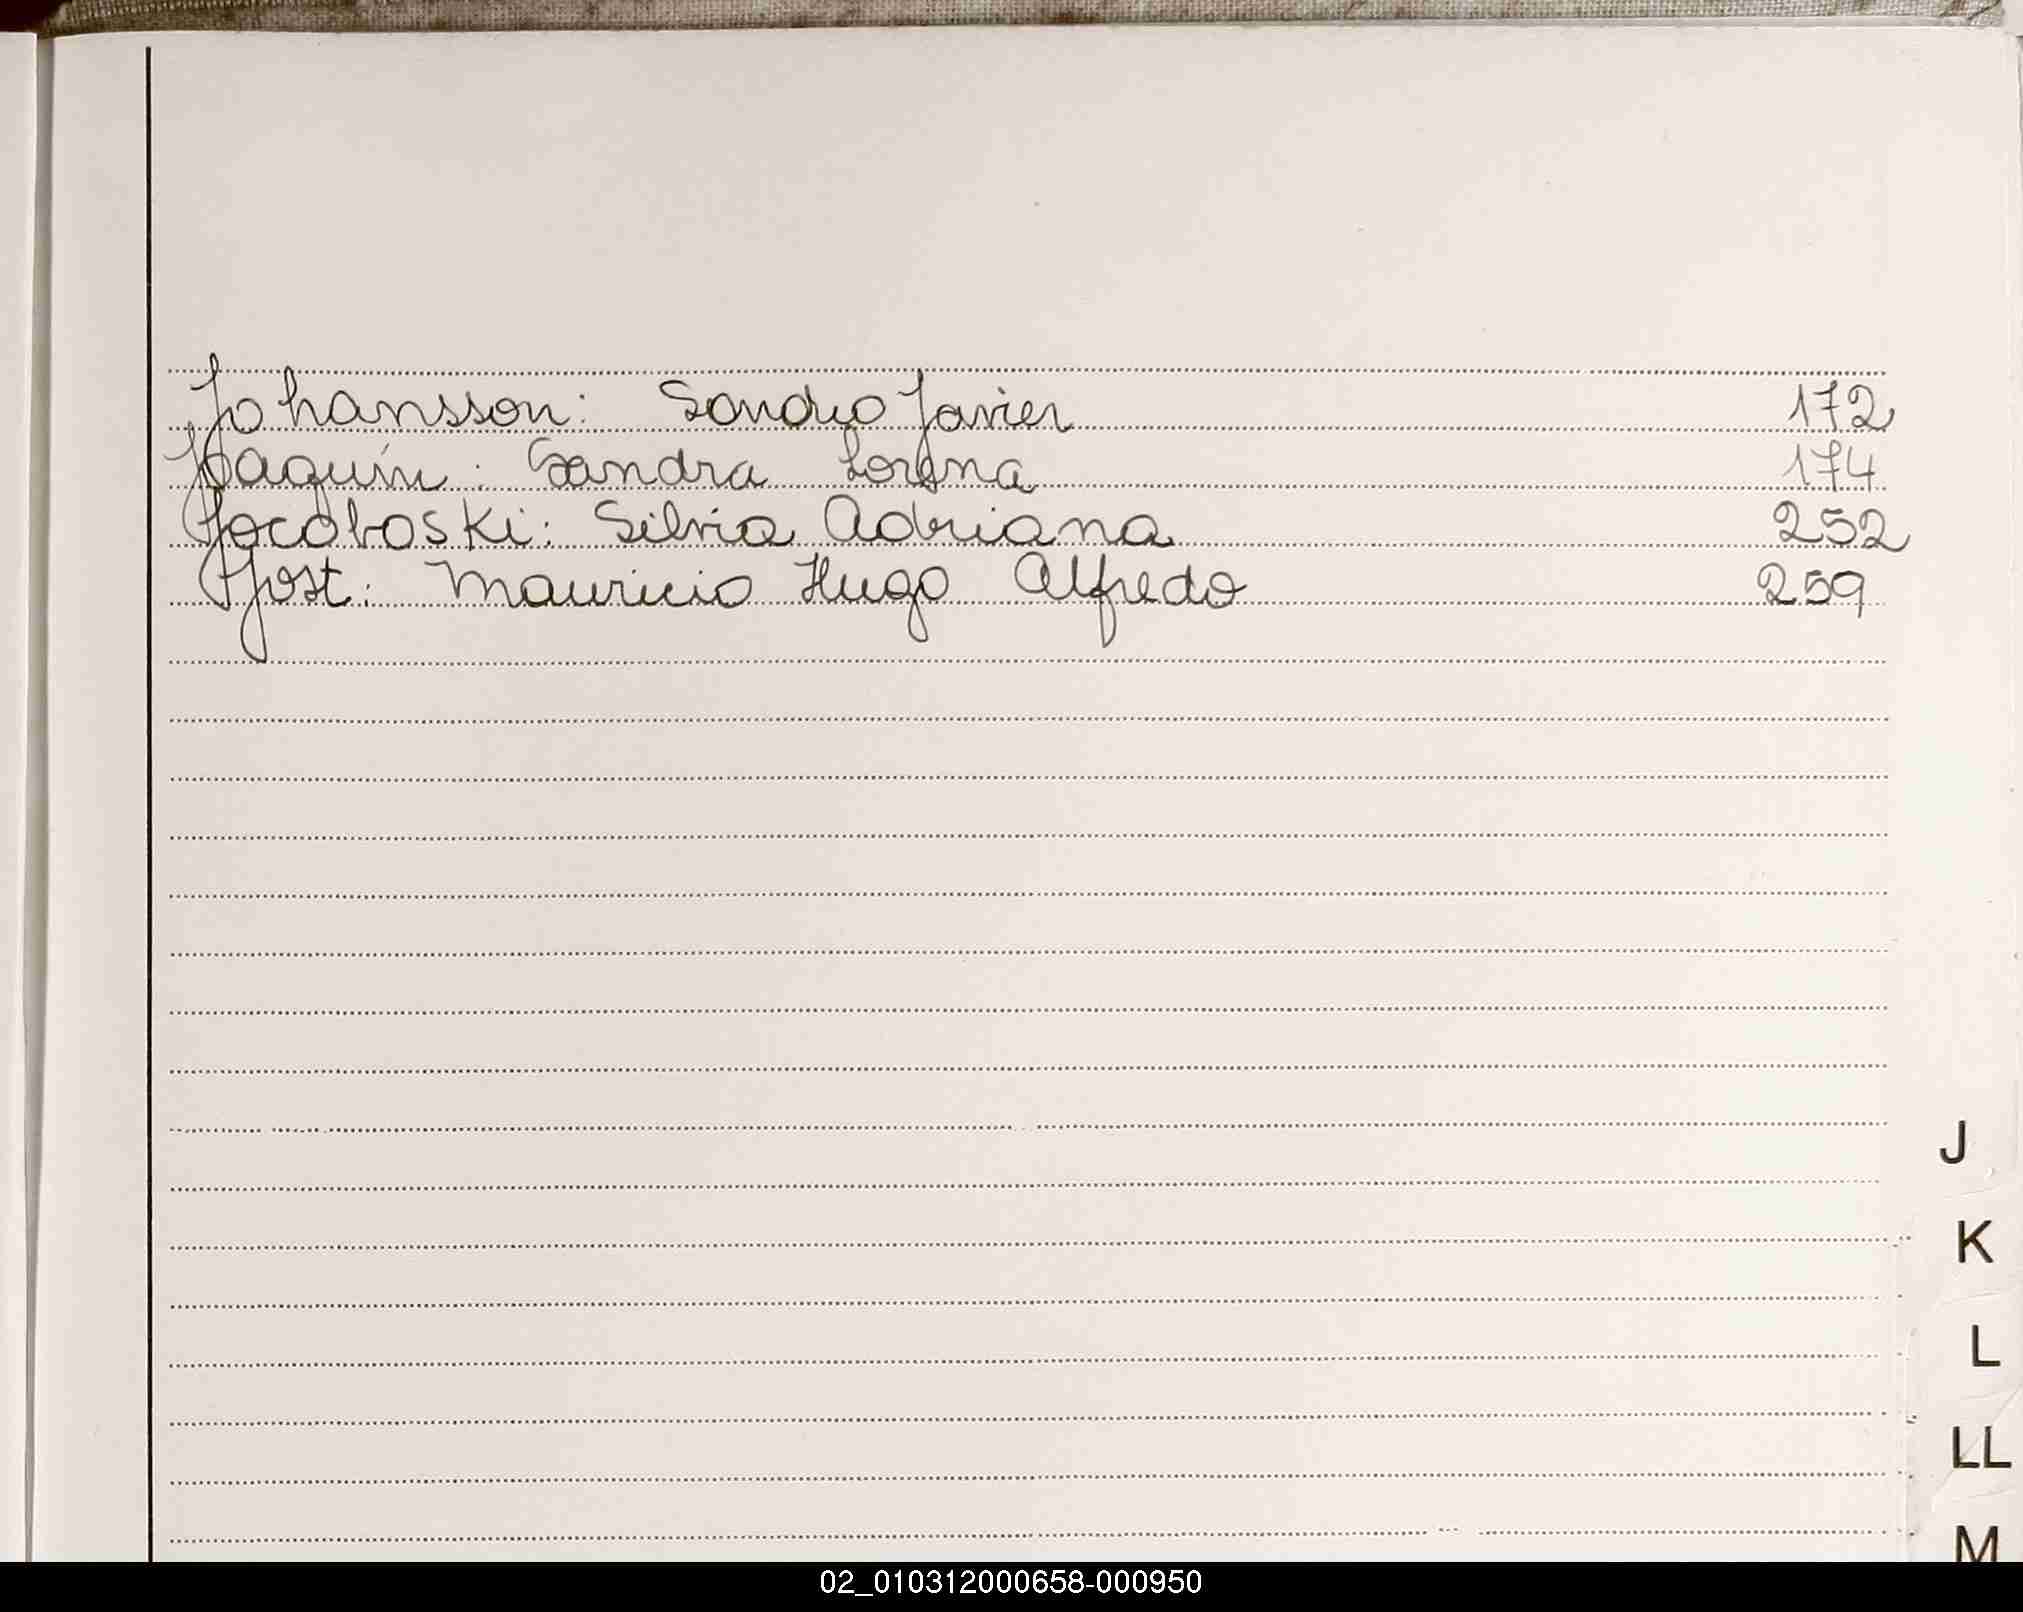 Johansson: Sandro Javier 172
Joaquin: Sandra Lorena 174
Jocoboski: Silvia Adriana 252
Jost: Mauricio Hugo Alfredo 259
J
K
L
LL
M
02_010312000658-000950